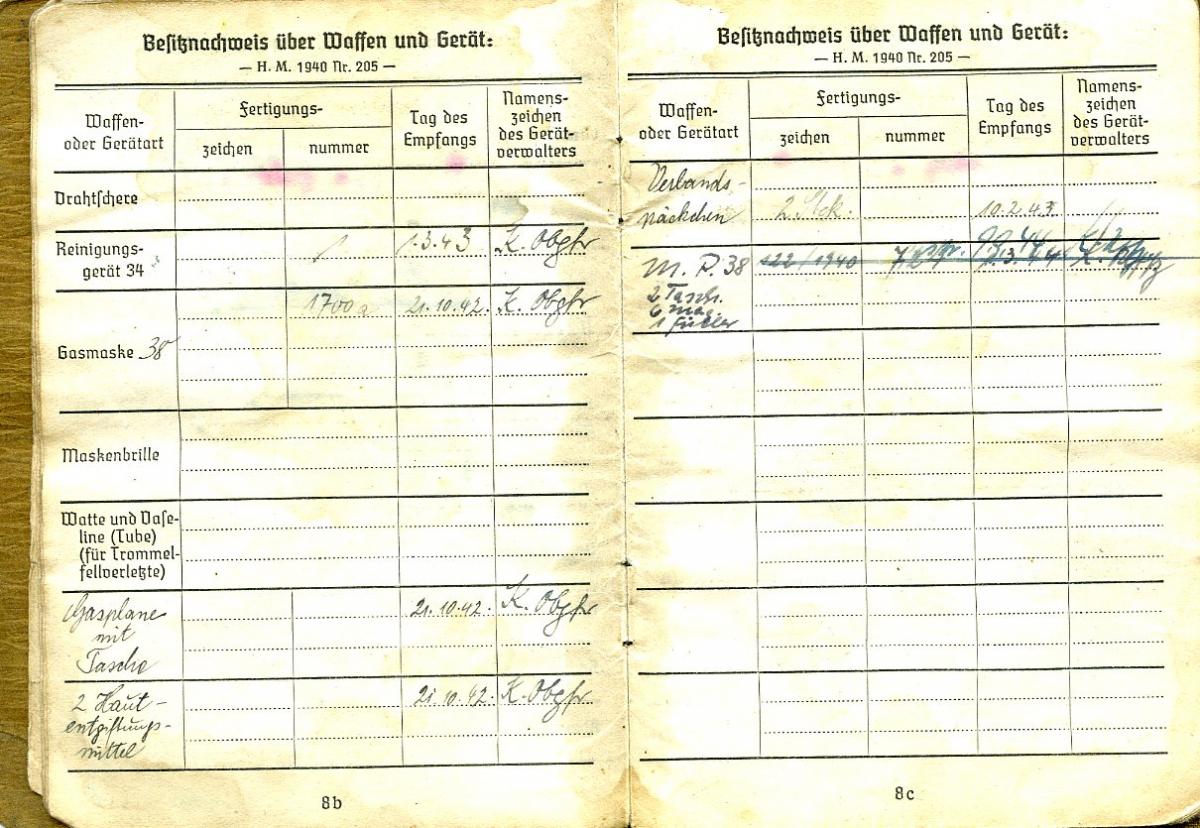 Besitznachweis über Waffen und Gerät:
— H. M. 1940 Nr. 205 —
Waffen-
oder Gerätart
Fertigungs-
zeichen
nummer
Tag des
Empfangs
Namens-
zeichen
des Gerät-
verwalters
Drahtschere
Reinigungs-
gerät 34
1
1.3.43
K. Obgfr
Gasmaske 38
1700a
21.10.42.
K. Obgfr
Maskenbrille
Watte und Vase-
line (Tube)
(für Trommel-
fellverletzte)
Gasplane
mit
Tasche
21.10.42.
K. Obgfr
2 Haut-
entgiftungs-
mittel
21.10.42.
K. Obgfr
8b
Besitznachweis über Waffen und Gerät:
— H. M. 1940 Nr. 205 —
Waffen-
oder Gerätart
Fertigungs-
zeichen
nummer
Tag des
Empfangs
Namens-
zeichen
des Gerät-
verwalters
Verbands-
päckchen
2 Stck.
10.2.43
M. P. 38
122/1940
2 Tasch.
6 Mag.
1 Füller
8c